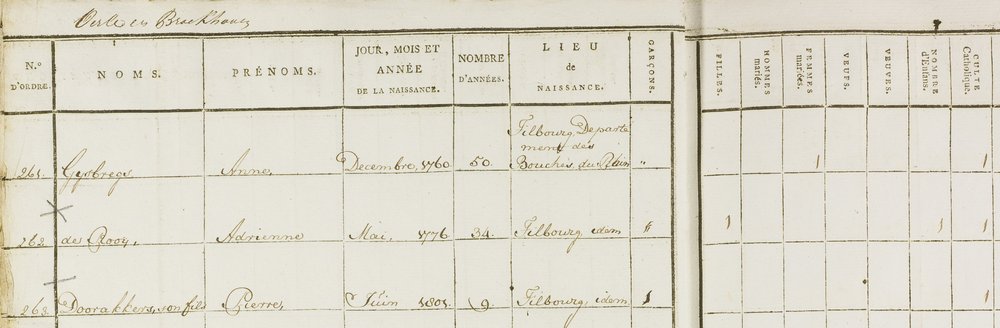 Oerle en Broekhoven
N.º D'ORDRE. NOMS. PRÉNOMS. JOUR, MOIS ET ANNÉE DE LA NAISSANCE. NOMBRE D'ANNÉES. LIEU de NAISSANCE. GARÇONS. FILLES. HOMMES mariés. FEMMES mariées. VEUFS. VEUVES. NOMBRE d'Enfans. CULTE Catholique.
261. Gysbregs Anne, Decembre, 1760 50. Tilbourg, Departe
ment des
Bouches du Rhin " 1 1
262. de Rooy, Adrienne Mai, 1776 34. Tilbourg, idem " 1 1 1
263. Doorakkers, son fils Pierre, Juin 1801. 9. Tilbourg, idem 1 1